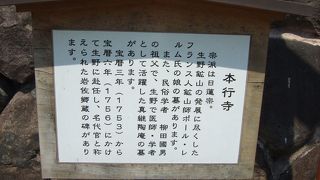 本行寺
宗派は日蓮宗。
生野鉱山の発展に尽くした
フランス人鉱山師ポール・レ
ルム氏の娘の墓があります。
また、民俗学者 柳田國男
の祖父で、生野で医師・学者
として活躍した真継陶庵の墓
があります。
宝暦三年（1753）から
宝暦六年（1756）にかけ
て生野に赴任し、名代官と称
えられた岩佐郷蔵の碑があり
ます。